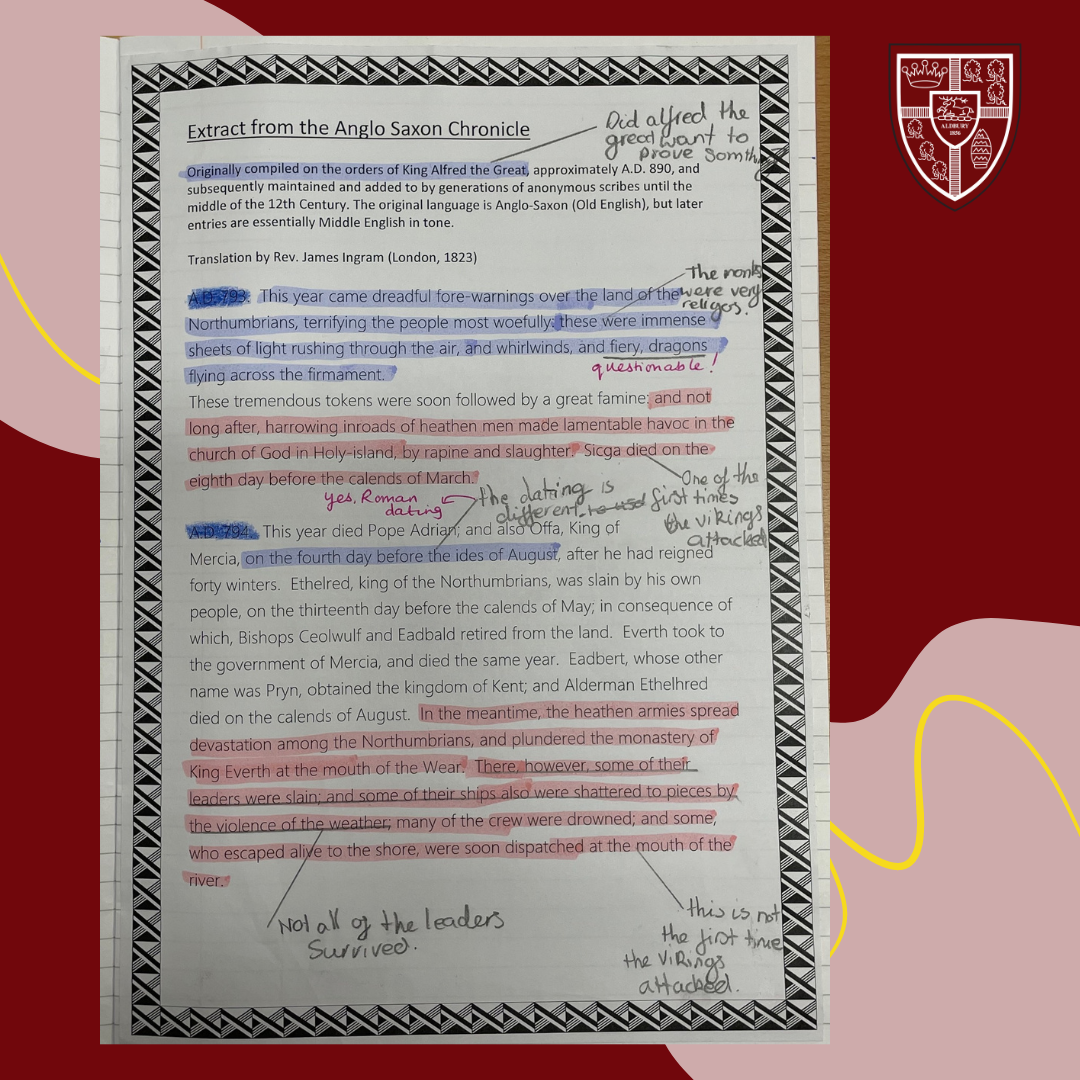 Did alfred the
great want to
prove somth
Extract from the Anglo Saxon Chronicle
Originally compiled on the orders of King Alfred the Great, approximately A.D. 890, and
subsequently maintained and added to by generations of anonymous scribes until the
middle of the 12th Century. The original language is Anglo-Saxon (Old English), but later
entries are essentially Middle English in tone.
Translation by Rev. James Ingram (London, 1823)
The monks
were very
religos.
A.D. 793. This year came dreadful fore-warnings over the land of the
Northumbrians, terrifying the people most woefully: these were immense
sheets of light rushing through the air, and whirlwinds, and fiery, dragons
flying across the firmament.
questionable!
These tremendous tokens were soon followed by a great famine: and not
long after, harrowing inroads of heathen men made lamentable havoc in the
church of God in Holy-island, by rapine and slaughter. Sicga died on the
eighth day before the calends of March.
One of the
first times
the vikings
attacked
the dating is
different to used
yes, Roman
dating
A.D. 794. This year died Pope Adrian; and also Offa, King of
Mercia, on the fourth day before the ides of August, after he had reigned
forty winters. Ethelred, king of the Northumbrians, was slain by his own
people, on the thirteenth day before the calends of May; in consequence of
which, Bishops Ceolwulf and Eadbald retired from the land. Everth took to
the government of Mercia, and died the same year. Eadbert, whose other
name was Pryn, obtained the kingdom of Kent; and Alderman Ethelhred
died on the calends of August. In the meantime, the heathen armies spread
devastation among the Northumbrians, and plundered the monastery of
King Everth at the mouth of the Wear. There, however, some of their
leaders were slain; and some of their ships also were shattered to pieces by
the violence of the weather; many of the crew were drowned; and some,
who escaped alive to the shore, were soon dispatched at the mouth of the
river.
Not all of the leaders
Survived.
this is not
the first time
the vikings
attacked.
ALDBURY
1856